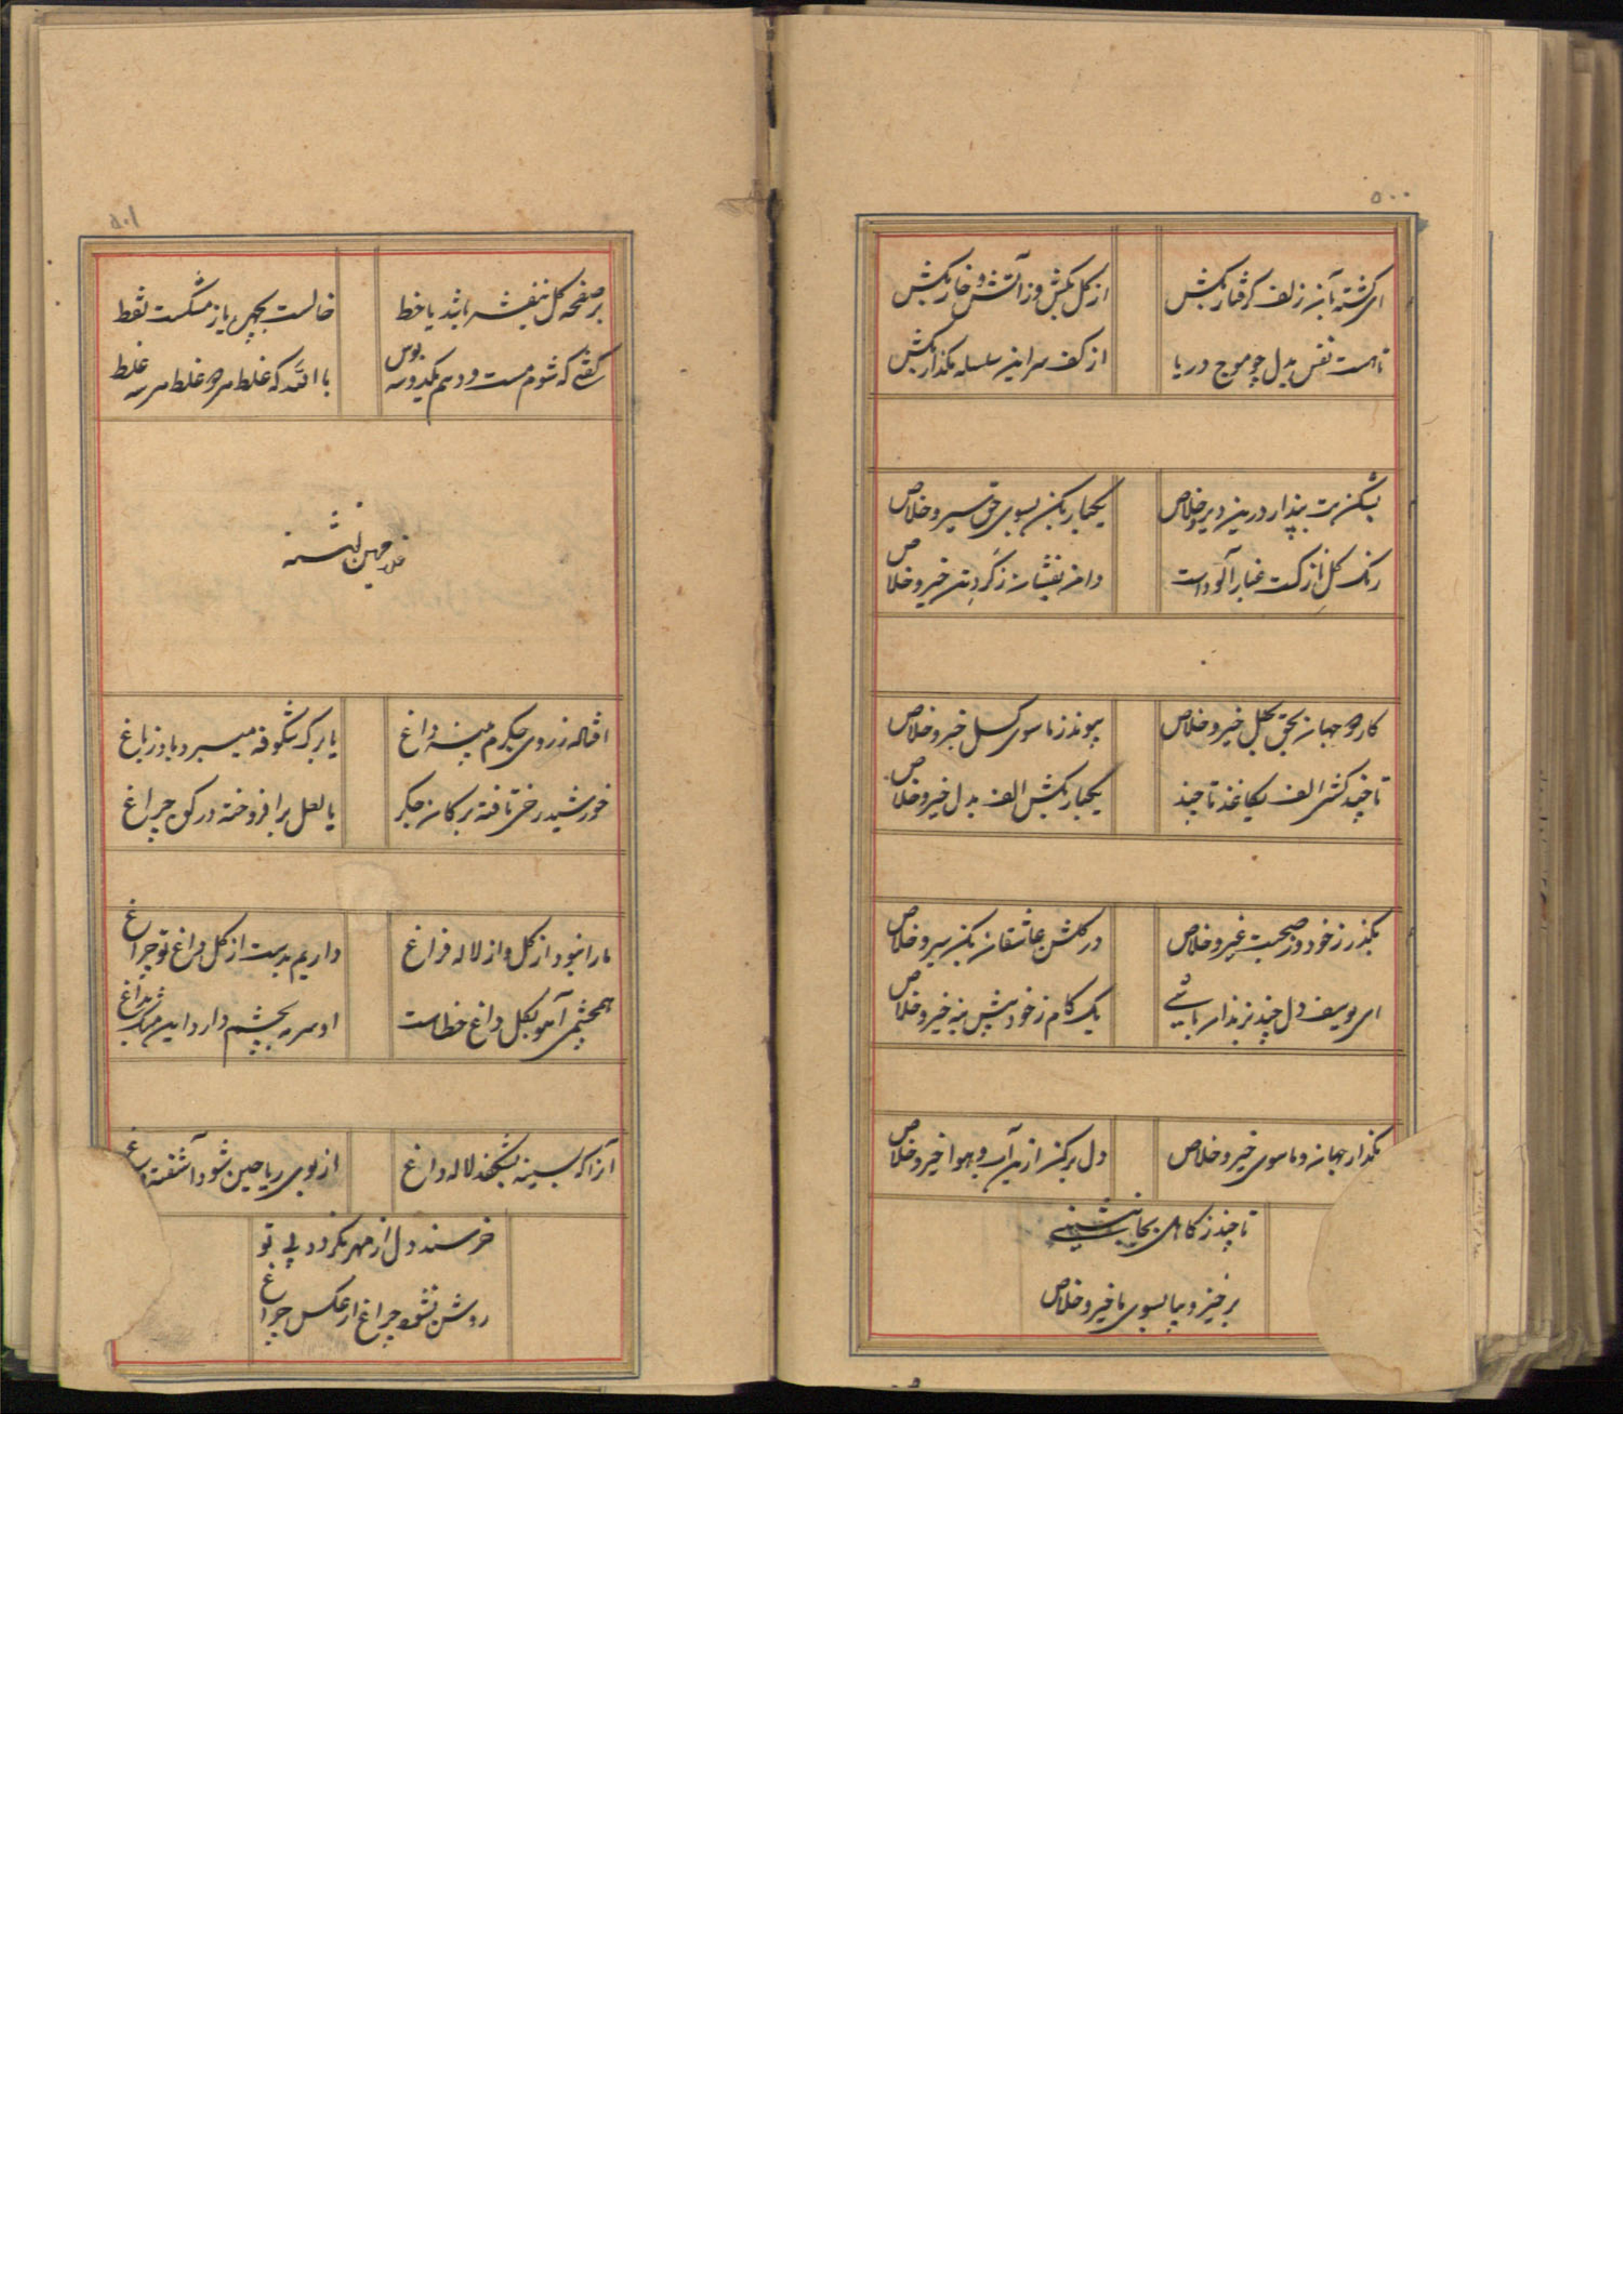 ۵۰۰
ای گشته بآن زلف گرفتار بکش
از گل بکش و ز آتش و خار بکش
تا هست نفس بدل چو موج دریا
از کف سر این سلسله مگذار بکش
بشکن بت پندار درین دیر و خلاص
یکبار بکن بسوی حق سیر و خلاص
رنگ گل از گشت غبار آلود است
دامن بفشان ز گرد تن خیز و خلاص
کار دو جهان بحق بهل خیز و خلاص
پیوند ز ماسوی گسل خیز و خلاص
تا چند کشی الف بکاغذ تا چند
یکبار بکش الف بدل خیز و خلاص
بگذر ز خود و ز صحبت غیر و خلاص
در گلشن عاشقان بکن سیر و خلاص
ای یوسف دل چند بزندان باشی
یک گام ز خود پیش بنه خیز و خلاص
بگذار جهان و ماسوی خیز و خلاص
دل برکن ازین آب و هوا خیز و خلاص
تا چند ز کاهلی بجا بنشینی
برخیز و بیا بسوی ما خیز و خلاص
۵۰۱
بر صفحه گل بنفشه باشد یا خط
خالست بچهره یا ز مشکست نقط
گفتی که شوم مست و دهم یکدو سه بوس
باالله که غلط مرو غلط مرسه غلط
افتاله ز روی جگرم پنبه داغ
یا برگ شکوفه میبرد باد ز باغ
خورشید رخی تافته بر کان جگر
یا لعل برافروخته در کوه چراغ
ما را نبود از گل و از لاله فراغ
داریم بدست از گل داغ تو چراغ
همچشمی آهو بگل داغ خطاست
او سرمه بچشم دارد این مشک بداغ
آنرا که بسینه بشکفد لاله داغ
از بوی ریاحین شود آشفته
خرسند دل از مهر نگردد بی تو
روشن نشود چراغ از عکس چراغ